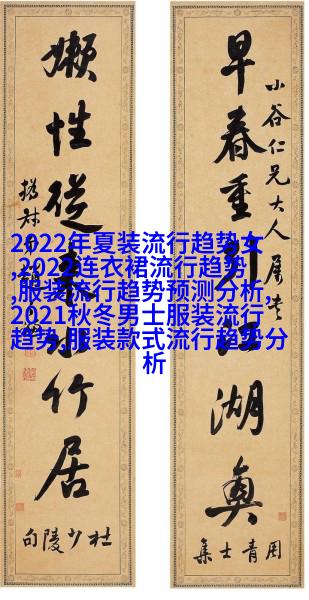 2022年夏装流行趋势女
,2022连衣裙流行趋势
,服装流行趋势预测分析,
2021秋冬男士服装流行
趋势,服装款式流行趋势分
析
小谷仁兄大人属
早春重引江湖興
周青士集
嬾性從来水竹居
杜少陵句